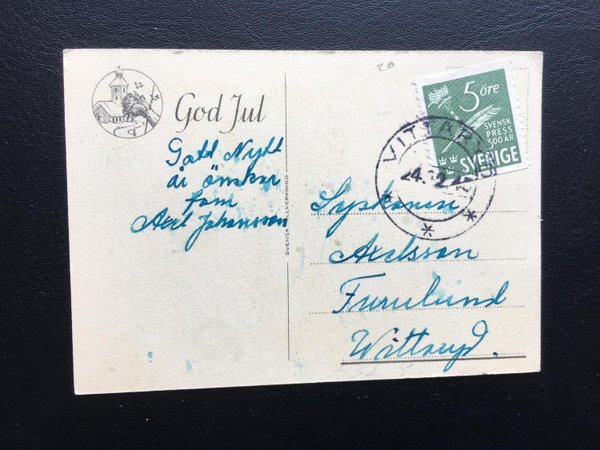 20
God Jul
Gott Nytt
år önskar
fam
Axel Johansson
SVENSK TILLVERKNING
5 öre
SVENSK
PRESS
300 ÅR
SVERIGE
VITTARYD
24.12
Syskonen
Axelsson
Furulund
Wittaryd.